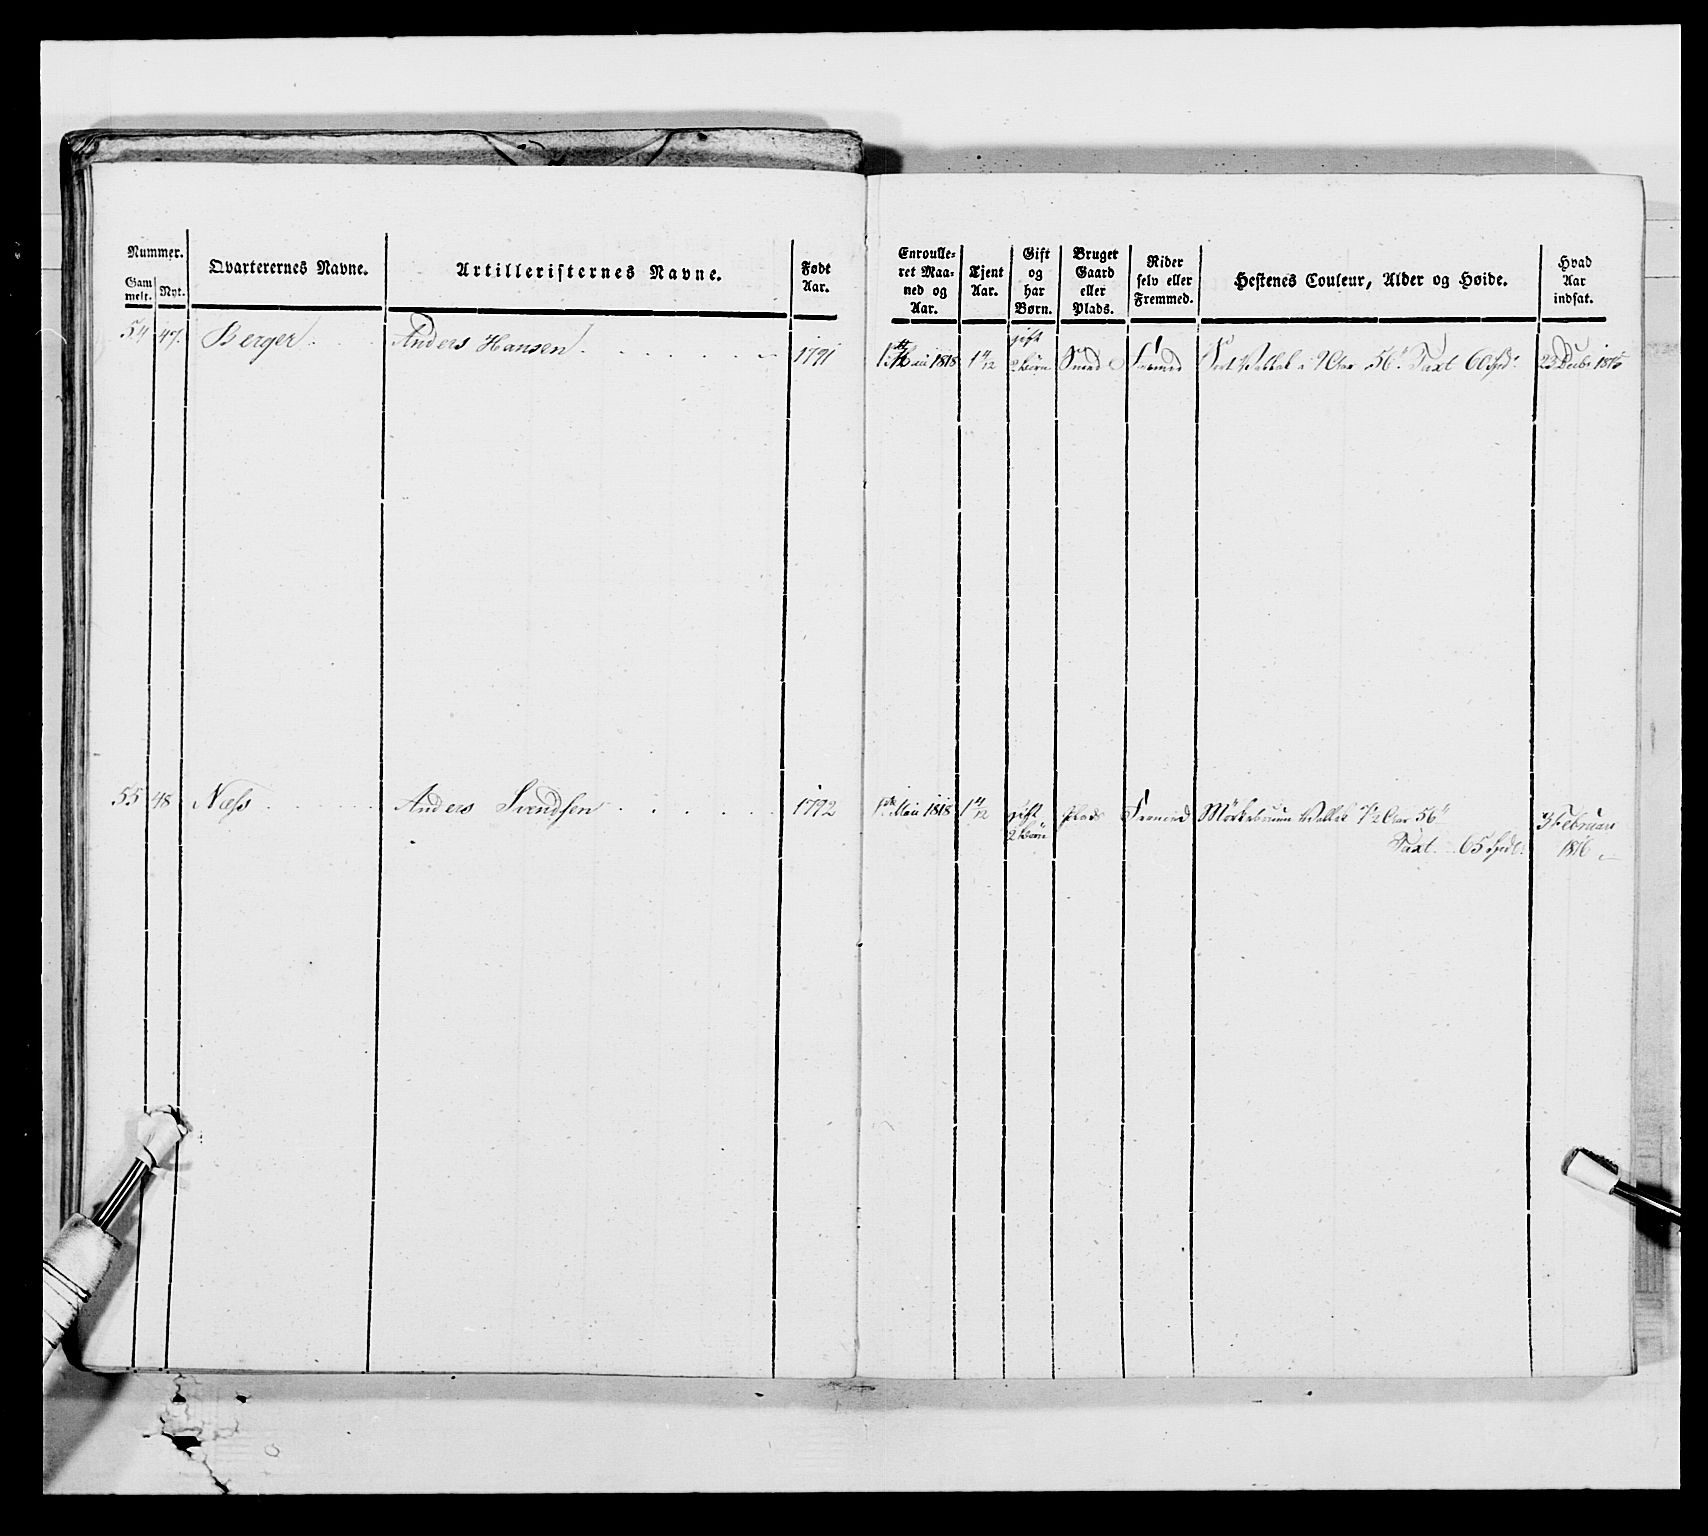 Nummer.
Gammelt. Nyt.
Qvarterernes Navne.
Artilleristernes Navne.
Født Aar.
Enroulleret Maaned og Aar.
Tjent Aar.
Gift og har Børn.
Bruget Gaard eller Plads.
Rider selv eller Fremmed.
Hestenes Couleur, Alder og Høide.
Hvad Aar indsat.
54 47. Berger Anders Hansen 1791 1 Mai 1818 1 4/12 gift 2 børn Fremed Sort Vallak 56" Taxt 60 spd: 23 Decbr
55 48 Næss Anders Svendsen 1792 1ste Mai 1818 gift 2 børn plads Fremed Mörkebruun Vallak 56"
Taxt 65 spdl:
3 Februari
1816